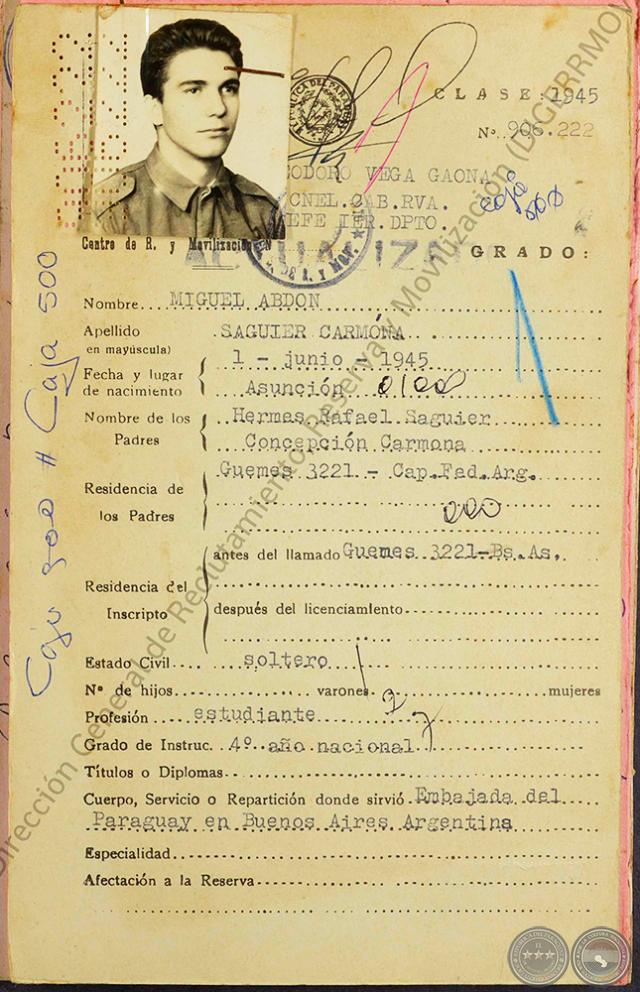 CLASE: 1945
Nº 906.222
ODORO VEGA GAONA
CNEL. CAB. RVA.
EFE IER. DPTO.
Caja 500
Centro de R. y Movilización N
GRADO:
Nombre MIGUEL ABDON
Apellido
en mayúscula) SAGUIER CARMONA
Fecha y lugar de nacimiento { 1 - junio - 1945
Asunción
Nombre de los Padres { Hermas Rafael Saguier
Concepción Carmona
Residencia de los Padres { Guemes 3221 - Cap. Fed. Arg.
Residencia del Inscripto { antes del llamado Guemes 3221-Bs. As.
después del licenciamiento
Estado Civil soltero
Nº de hijos varones mujeres
Profesión estudiante
Grado de Instruc. 4º. año nacional
Títulos o Diplomas
Cuerpo, Servicio o Repartición donde sirvió Embajada del
Paraguay en Buenos Aires Argentina
Especialidad
Afectación a la Reserva
Caja 500 # Caja 500
Dirección General de Reclutamiento, Reserva y Movilización (DIGERRMOV